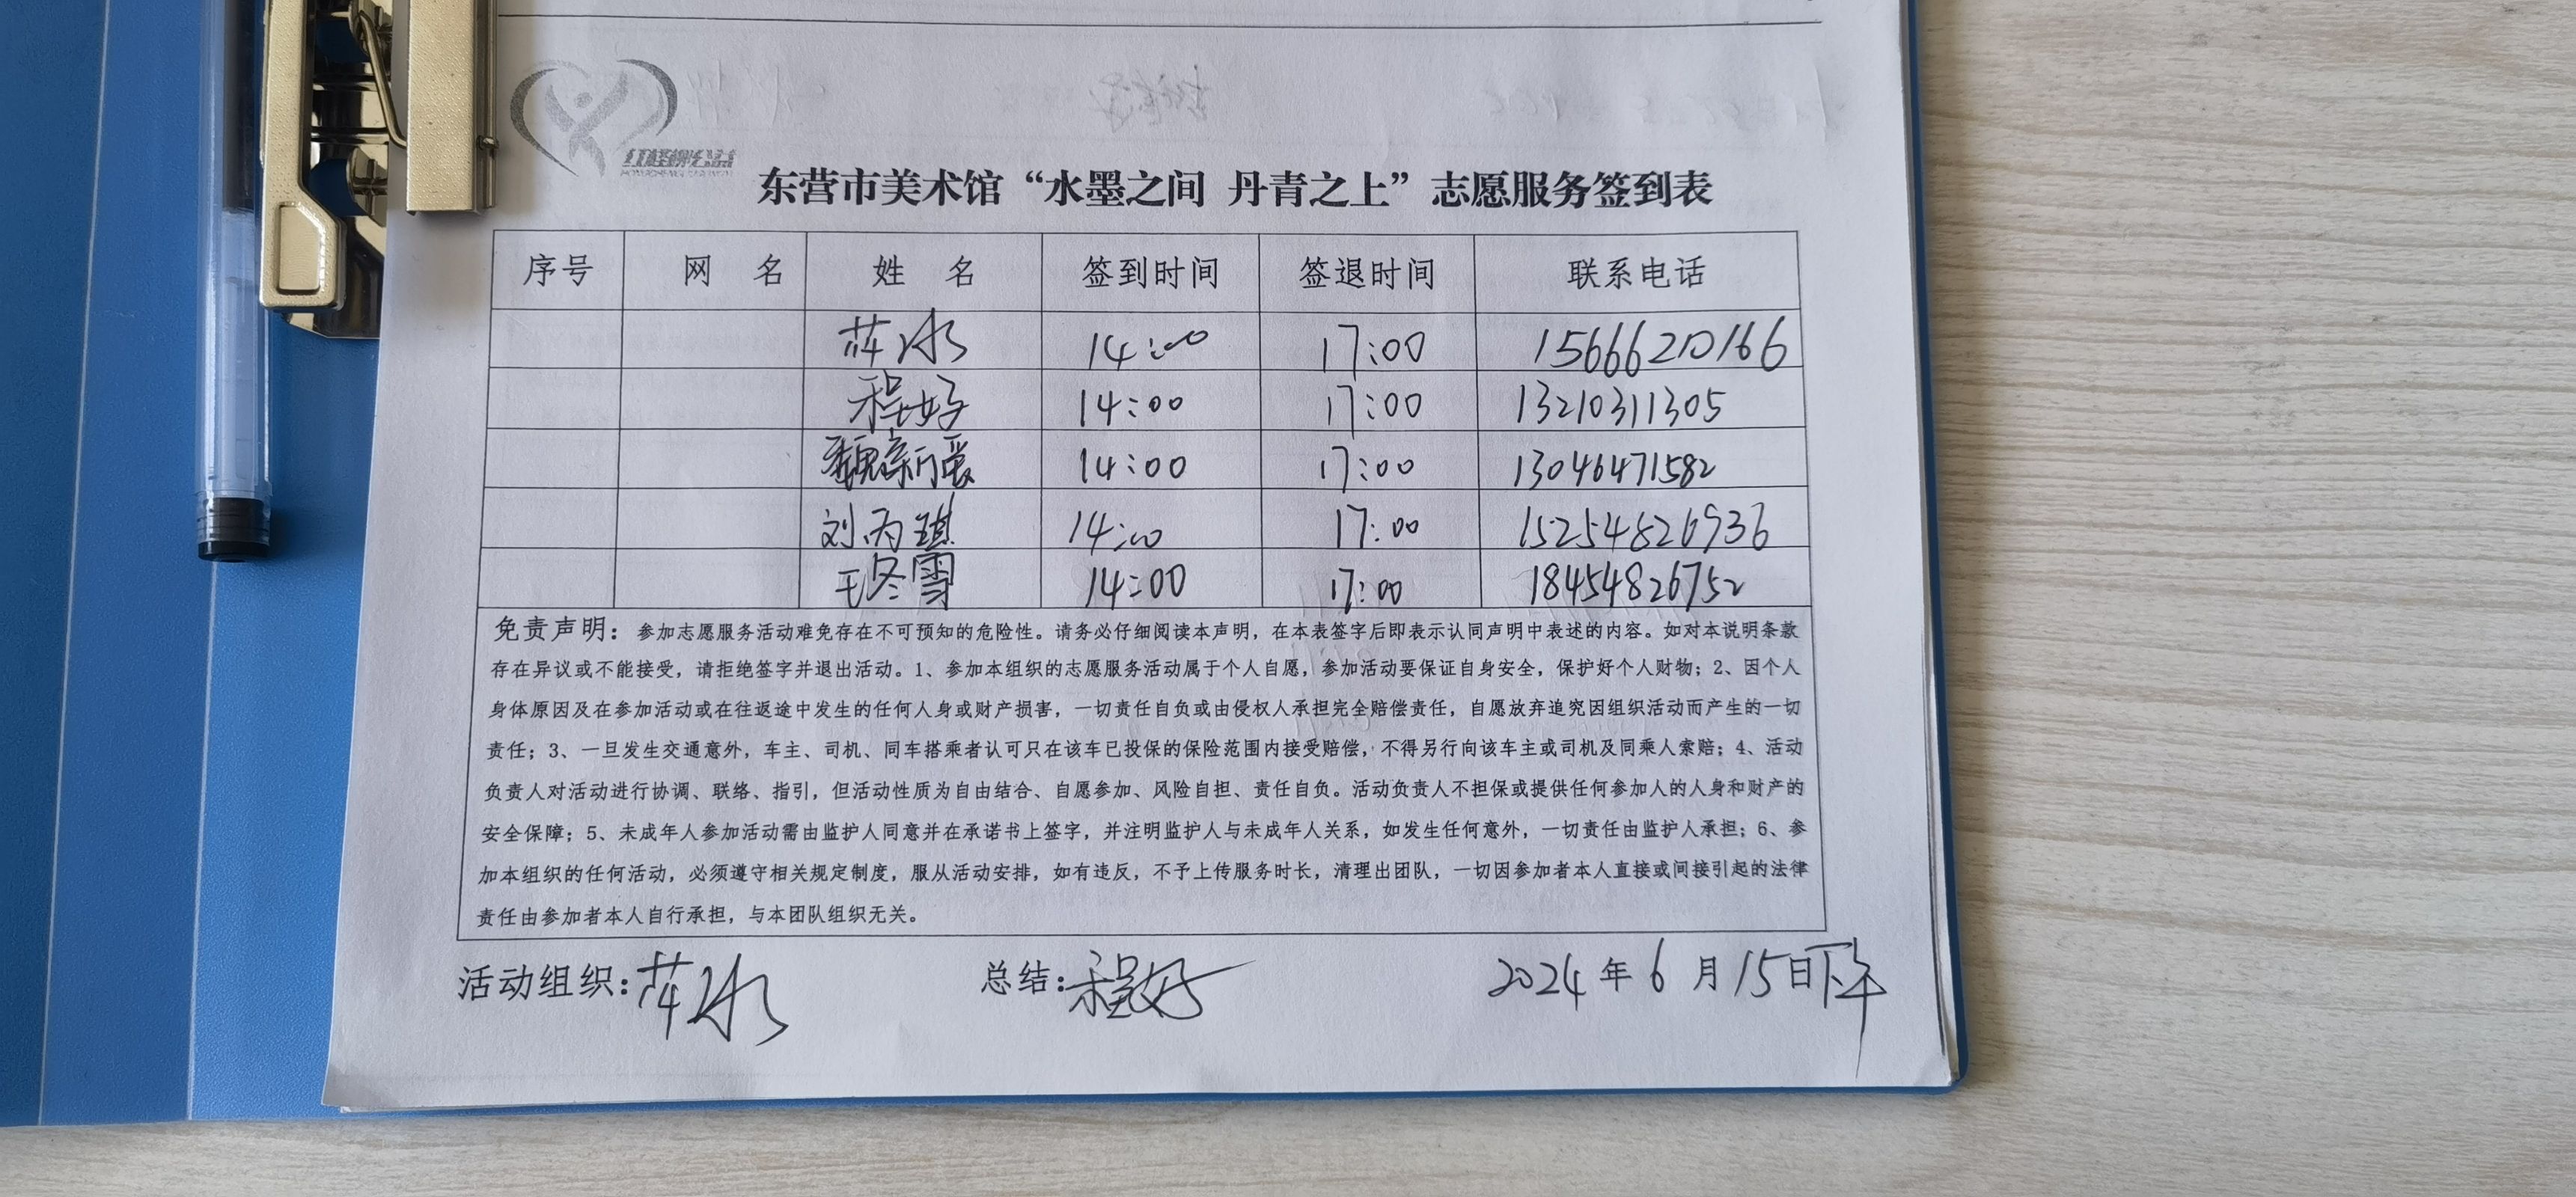 红丝带公益
东营市美术馆“水墨之间 丹青之上”志愿服务签到表
序号 网 名 姓 名 签到时间 签退时间 联系电话
14:00 17:00 15666210166
程好 14:00 17:00 13210311305
魏新爱 14:00 17:00 13046471582
刘丙琪 14:00 17:00 15254826936
王冬雪 14:00 17:00 18454826752
免责声明：参加志愿服务活动难免存在不可预知的危险性。请务必仔细阅读本声明，在本表签字后即表示认同声明中表述的内容。如对本说明条款
存在异议或不能接受，请拒绝签字并退出活动。1、参加本组织的志愿服务活动属于个人自愿，参加活动要保证自身安全，保护好个人财物；2、因个人
身体原因及在参加活动或在往返途中发生的任何人身或财产损害，一切责任自负或由侵权人承担完全赔偿责任，自愿放弃追究因组织活动而产生的一切
责任；3、一旦发生交通意外，车主、司机、同车搭乘者认可只在该车已投保的保险范围内接受赔偿，不得另行向该车主或司机及同乘人索赔；4、活动
负责人对活动进行协调、联络、指引，但活动性质为自由结合、自愿参加、风险自担、责任自负。活动负责人不担保或提供任何参加人的人身和财产的
安全保障；5、未成年人参加活动需由监护人同意并在承诺书上签字，并注明监护人与未成年人关系，如发生任何意外，一切责任由监护人承担；6、参
加本组织的任何活动，必须遵守相关规定制度，服从活动安排，如有违反，不予上传服务时长，清理出团队，一切因参加者本人直接或间接引起的法律
责任由参加者本人自行承担，与本团队组织无关。
活动组织： 总结：程好 2024年6月15日下午